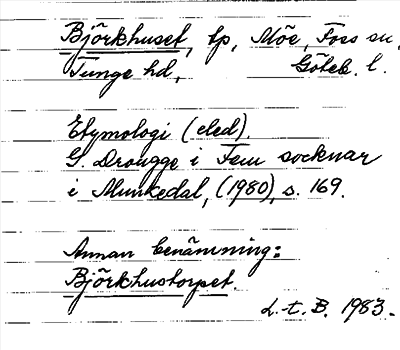 Björkhuset, tp, Möe, Foss sn,
Tunge hd, Göteb. l.
Etymologi (eled).
G. Drougge i Fem socknar
i Munkedal, (1980), s. 169.
Annan benämning:
Björkhustorpet.
L.t.B. 1983.